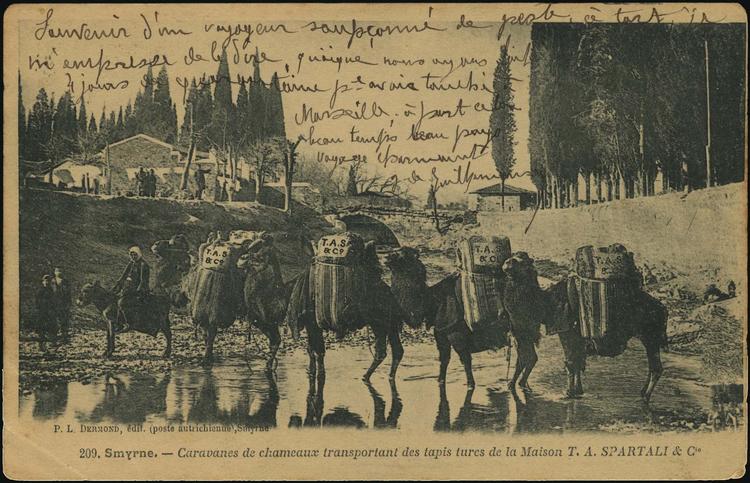 Souvenir d'un voyageur soupçonné de peste, à tort, je
m'empresse de le dire, quoique nous ayons fait
4 jours de quarantaine pr avoir touché
Marseille, à part cela
beau temps beau pays
voyage charmant
T.A.S
& Co
T.A.S
& Co
T.A.S
& Co
T.A.S
& Co
P. L. DERMOND, édit. (poste autrichienne), Smyrne
209. Smyrne. — Caravanes de chameaux transportant des tapis turcs de la Maison T. A. SPARTALI & Cie